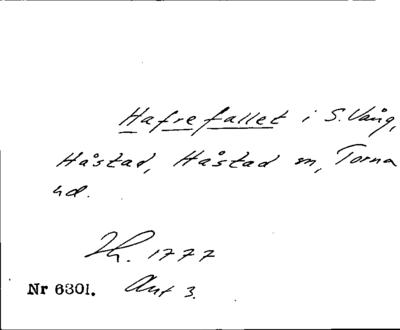 Hafrefallet i S. Vång,
Håstad, Håstad sn, Torna
hd.
Lh. 1777
Nr 6301. Akt 3.